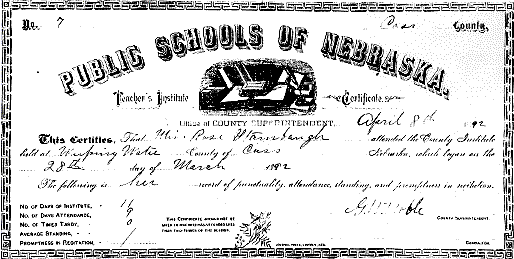 No. 7 Cass County.
PUBLIC SCHOOLS OF NEBRASKA.
Teacher's Institute Certificate.
OFFICE OF COUNTY SUPERINTENDENT, April 8th 1892
This Certifies, That Miss Rose attended the County Institute
held at Weeping Water County of Cass Nebraska, which began on the
28th day of March 1892
The following is her record of punctuality, attendance, standing, and promptness in recitation.
NO. OF DAYS OF INSTITUTE, 11
NO. OF DAYS ATTENDANCE, 9
NO. OF TIMES TARDY, 0
AVERAGE STANDING, 1
PROMPTNESS IN RECITATION, 1
THIS CERTIFICATE
COUNTY SUPERINTENDENT.
CONDUCTOR.